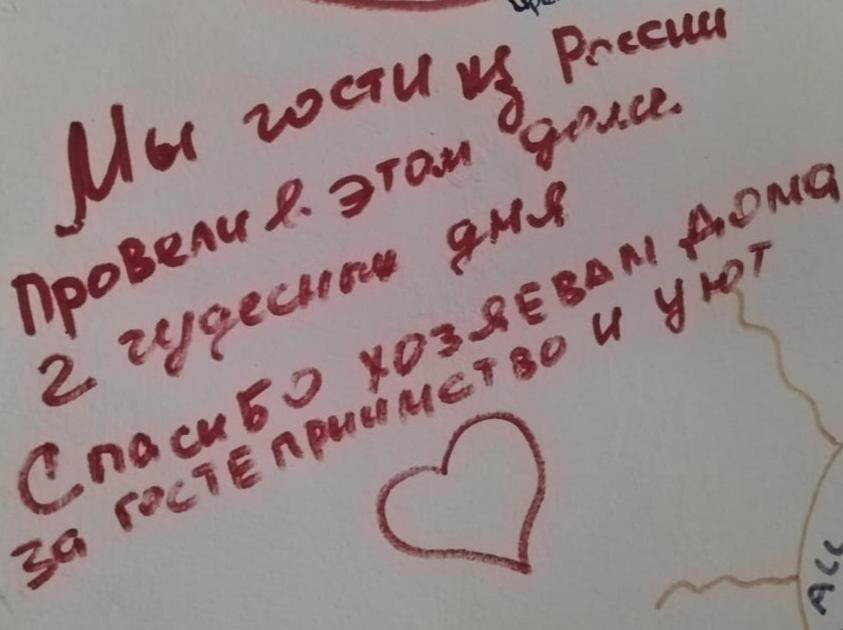 Мы гости из России
Провели в этом доме
2 чудесных дня
Спасибо хозяевам дома
за гостеприимство и уют